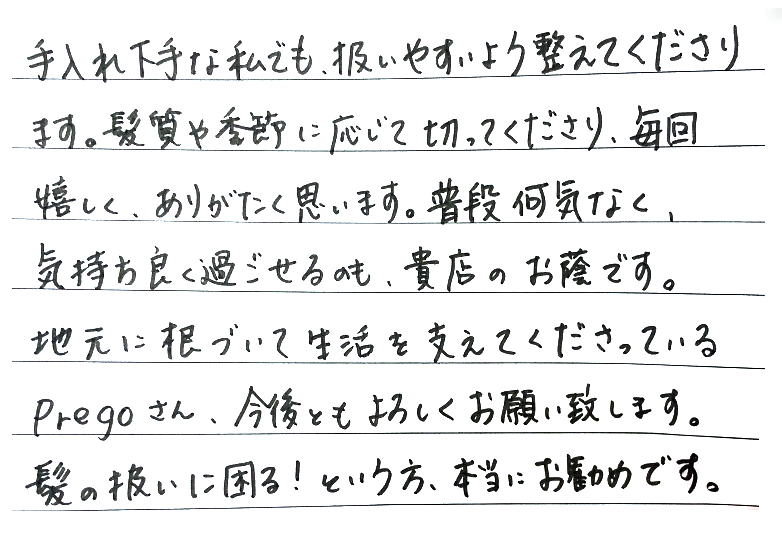 手入れ下手な私でも、扱いやすいよう整えてくださり
ます。髪質や季節に応じて切ってくださり、毎回
嬉しく、ありがたく思います。普段何気なく、
気持ち良く過ごせるのも、貴店のお蔭です。
地元に根づいて生活を支えてくださっている
Pregoさん、今後ともよろしくお願い致します。
髪の扱いに困る！という方、本当にお勧めです。